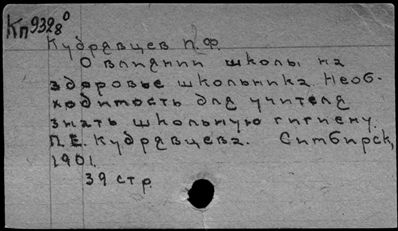 Кп 9328⁰
Кудрявцев П.Ф.
О влиянии школы на
здоровье школьника. Необ-
ходимость для учителя
знать школьную гигиену.
П.Е. Кудрявцева. Симбирск,
1901.
39 стр